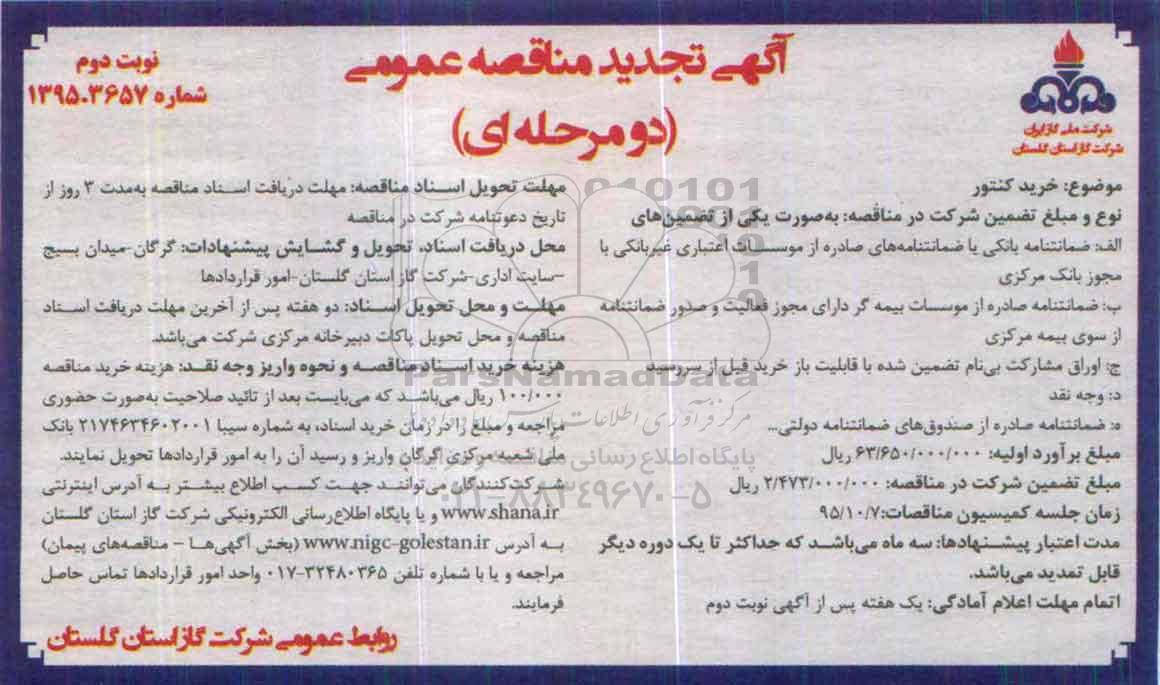 آگهی تجدید مناقصه عمومی
(دو مرحله ای)
نوبت دوم
شماره ۱۳۹۵.۳۶۵۷
شرکت ملی گاز ایران
شرکت گاز استان گلستان
موضوع: خرید کنتور
نوع و مبلغ تضمین شرکت در مناقصه: به‌صورت یکی از تضمین‌های
الف: ضمانتنامه بانکی یا ضمانتنامه‌های صادره از موسسات اعتباری غیربانکی با
مجوز بانک مرکزی
ب: ضمانتنامه صادره از موسسات بیمه گر دارای مجوز فعالیت و صدور ضمانتنامه
از سوی بیمه مرکزی
ج: اوراق مشارکت بی‌نام تضمین شده با قابلیت باز خرید قبل از سررسید
د: وجه نقد
ه: ضمانتنامه صادره از صندوق‌های ضمانتنامه دولتی...
مبلغ برآورد اولیه: ۶۳/۶۵۰/۰۰۰/۰۰۰ ریال
مبلغ تضمین شرکت در مناقصه: ۲/۴۷۳/۰۰۰/۰۰۰ ریال
زمان جلسه کمیسیون مناقصات: ۹۵/۱۰/۷
مدت اعتبار پیشنهادها: سه ماه می‌باشد که حداکثر تا یک دوره دیگر
قابل تمدید می‌باشد.
اتمام مهلت اعلام آمادگی: یک هفته پس از آگهی نوبت دوم
مهلت تحویل اسناد مناقصه: مهلت دریافت اسناد مناقصه به‌مدت ۳ روز از
تاریخ دعوتنامه شرکت در مناقصه
محل دریافت اسناد، تحویل و گشایش پیشنهادات: گرگان-میدان بسیج
-سایت اداری-شرکت گاز استان گلستان-امور قراردادها
مهلت و محل تحویل اسناد: دو هفته پس از آخرین مهلت دریافت اسناد
مناقصه و محل تحویل پاکات دبیرخانه مرکزی شرکت می‌باشد.
هزینه خرید اسناد مناقصه و نحوه واریز وجه نقد: هزینه خرید مناقصه
۱۰۰/۰۰۰ ریال می‌باشد که می‌بایست بعد از تائید صلاحیت به‌صورت حضوری
مراجعه و مبلغ را در زمان خرید اسناد، به شماره سیبا ۲۱۷۴۶۳۴۶۰۲۰۰۱ بانک
ملی شعبه مرکزی گرگان واریز و رسید آن را به امور قراردادها تحویل نمایند.
شرکت‌کنندگان می‌توانند جهت کسب اطلاع بیشتر به آدرس اینترنتی
www.shana.ir و یا پایگاه اطلاع‌رسانی الکترونیکی شرکت گاز استان گلستان
به آدرس www.nigc-golestan.ir (بخش آگهی‌ها - مناقصه‌های پیمان)
مراجعه و یا با شماره تلفن ۳۲۴۸۰۳۶۵-۰۱۷ واحد امور قراردادها تماس حاصل
فرمایند.
روابط عمومی شرکت گاز استان گلستان
ParsNamadData
پایگاه اطلاع رسانی
۰۲۱-۸۸۳۴۹۶۷۰-۵